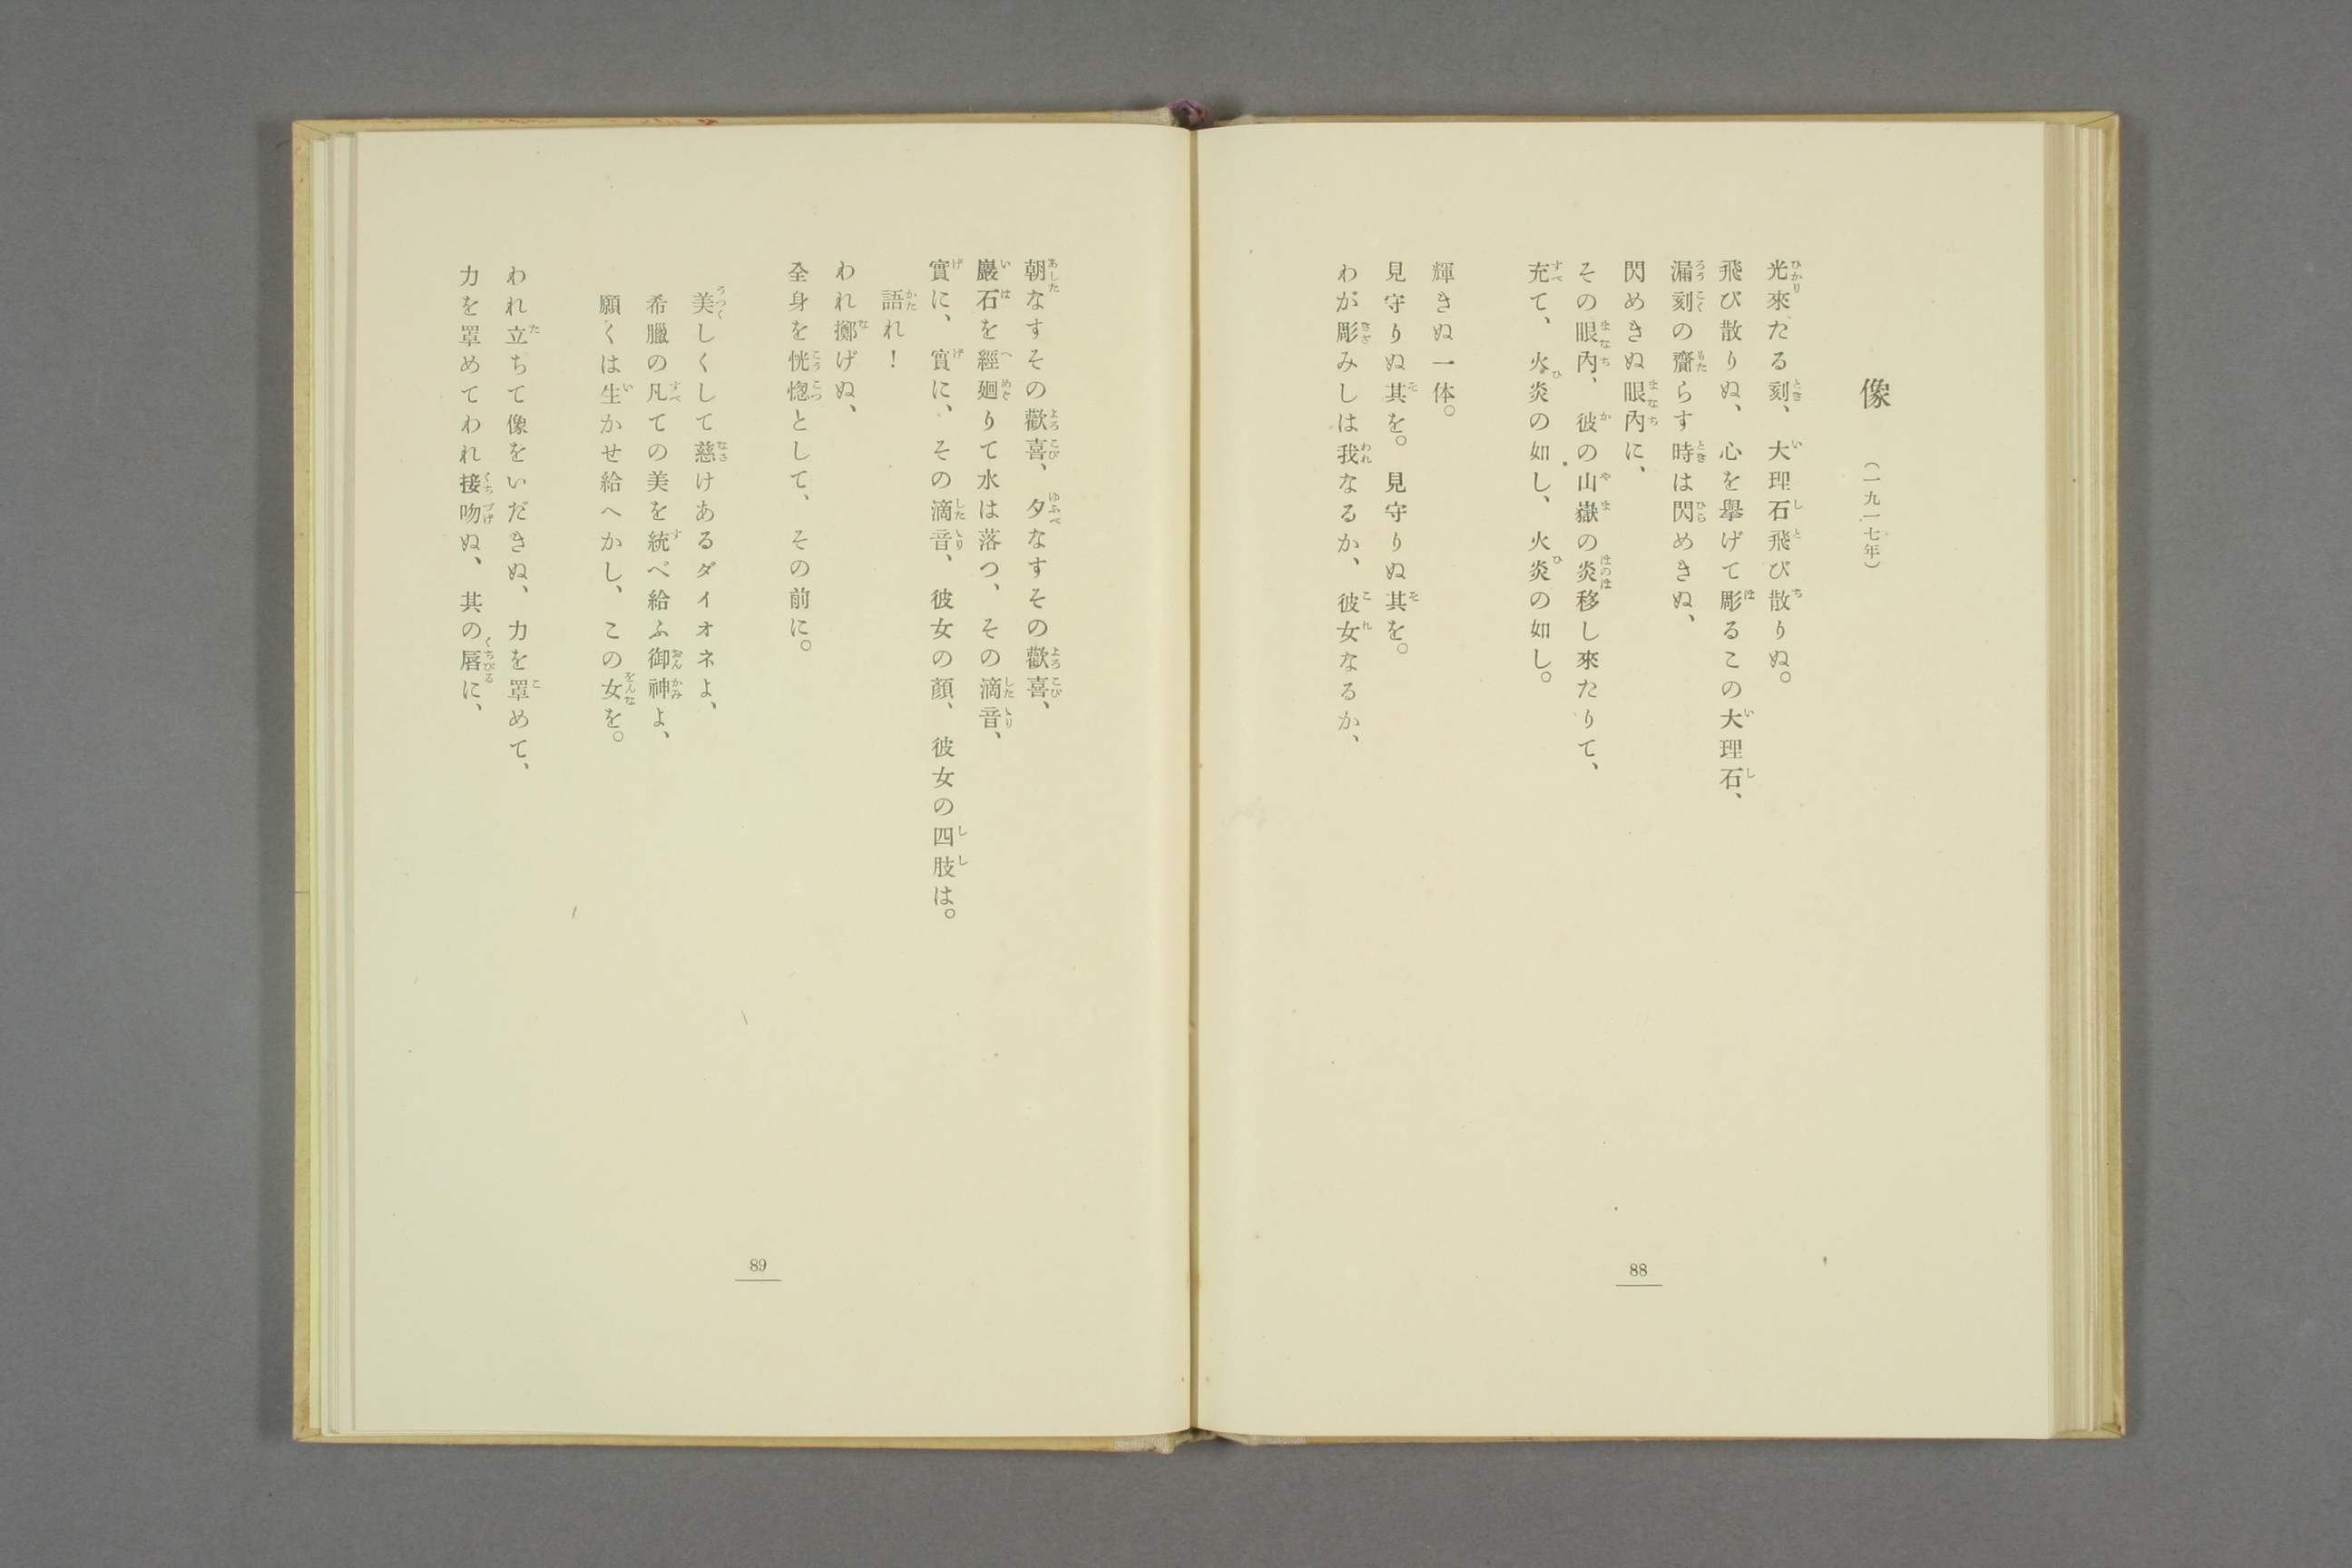 像　（一九一七年）
光來たる刻、大理石飛び散りぬ。
飛び散りぬ、心を擧げて彫るこの大理石、
漏刻の齎らす時は閃めきぬ、
閃めきぬ眼內に、
その眼內、彼の山嶽の炎移し來たりて、
充て、火炎の如し、火炎の如し。
輝きぬ一体。
見守りぬ其を。見守りぬ其を。
わが彫みしは我なるか、彼女なるか、
88
朝なすその歡喜、夕なすその歡喜、
巖石を經廻りて水は落つ、その滴音、
實に、實に、その滴音、彼女の顏、彼女の四肢は。
語れ！
われ擲げぬ、
全身を恍惚として、その前に。
美しくして慈けあるダイオネよ、
希臘の凡ての美を統べ給ふ御神よ、
願くは生かせ給へかし、この女を。
われ立ちて像をいだきぬ、力を罩めて、
力を罩めてわれ接吻ぬ、其の唇に、
89